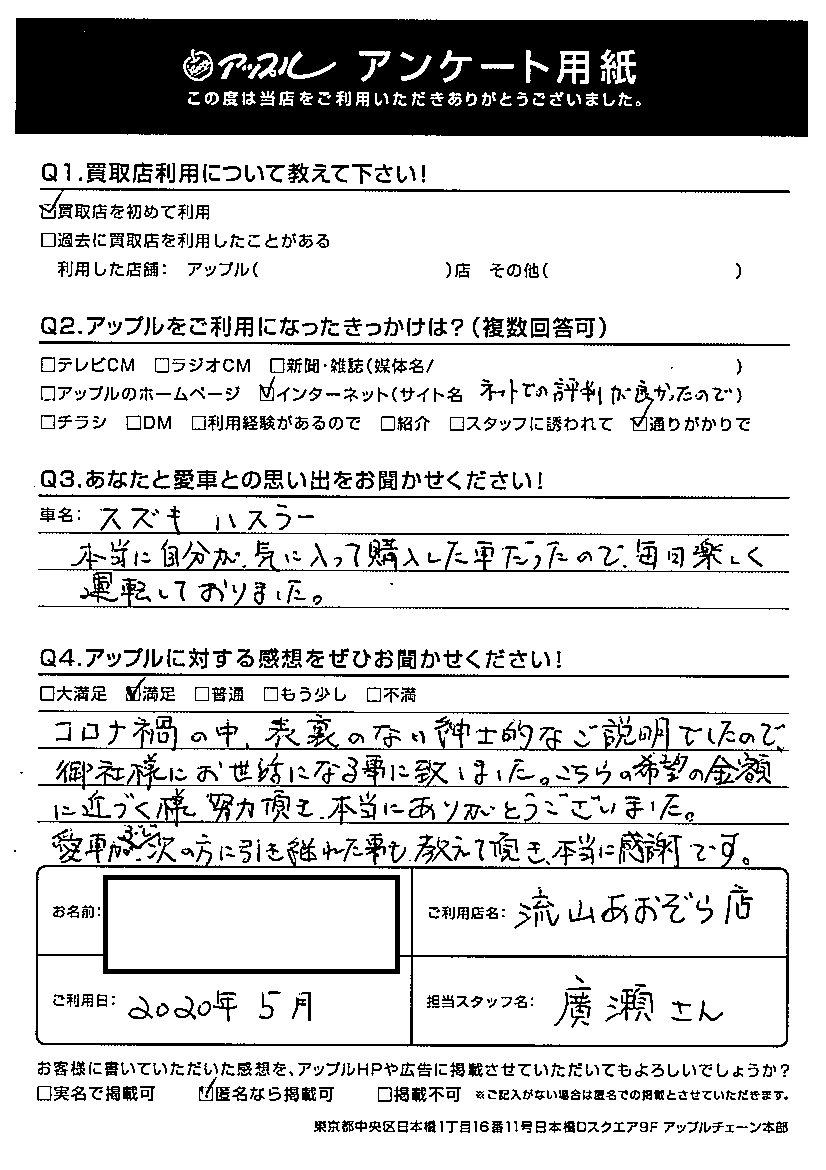 アップル アンケート用紙
この度は当店をご利用いただきありがとうございました。
Q1.買取店利用について教えて下さい!
☑買取店を初めて利用
□過去に買取店を利用したことがある
利用した店舗: アップル( )店 その他( )
Q2.アップルをご利用になったきっかけは?(複数回答可)
□テレビCM □ラジオCM □新聞・雑誌(媒体名/ )
□アップルのホームページ ☑インターネット(サイト名 ネットでの評判が良かったので)
□チラシ □DM □利用経験があるので □紹介 □スタッフに誘われて ☑通りがかりで
Q3.あなたと愛車との思い出をお聞かせください!
車名: スズキ ハスラー
本当に自分が、気に入って購入した車だったので、毎日楽しく
運転しておりました。
Q4.アップルに対する感想をぜひお聞かせください!
□大満足 ☑満足 □普通 □もう少し □不満
コロナ禍の中、表裏のない紳士的なご説明でしたので、
御社様にお世話になる事に致しました。こちらの希望の金額
に近づく様、努力頂き、本当にありがとうございました。
愛車がぶじ、次の方に引き継れた事も、教えて頂き、本当に感謝です。
お名前:
ご利用店名: 流山あおぞら店
ご利用日: 2020年 5月
担当スタッフ名: 廣瀬さん
お客様に書いていただいた感想を、アップルHPや広告に掲載させていただいてもよろしいでしょうか?
□実名で掲載可 ☑匿名なら掲載可 □掲載不可 ※ご記入がない場合は匿名での掲載とさせていただきます。
東京都中央区日本橋1丁目16番11号日本橋Dスクエア9F アップルチェーン本部